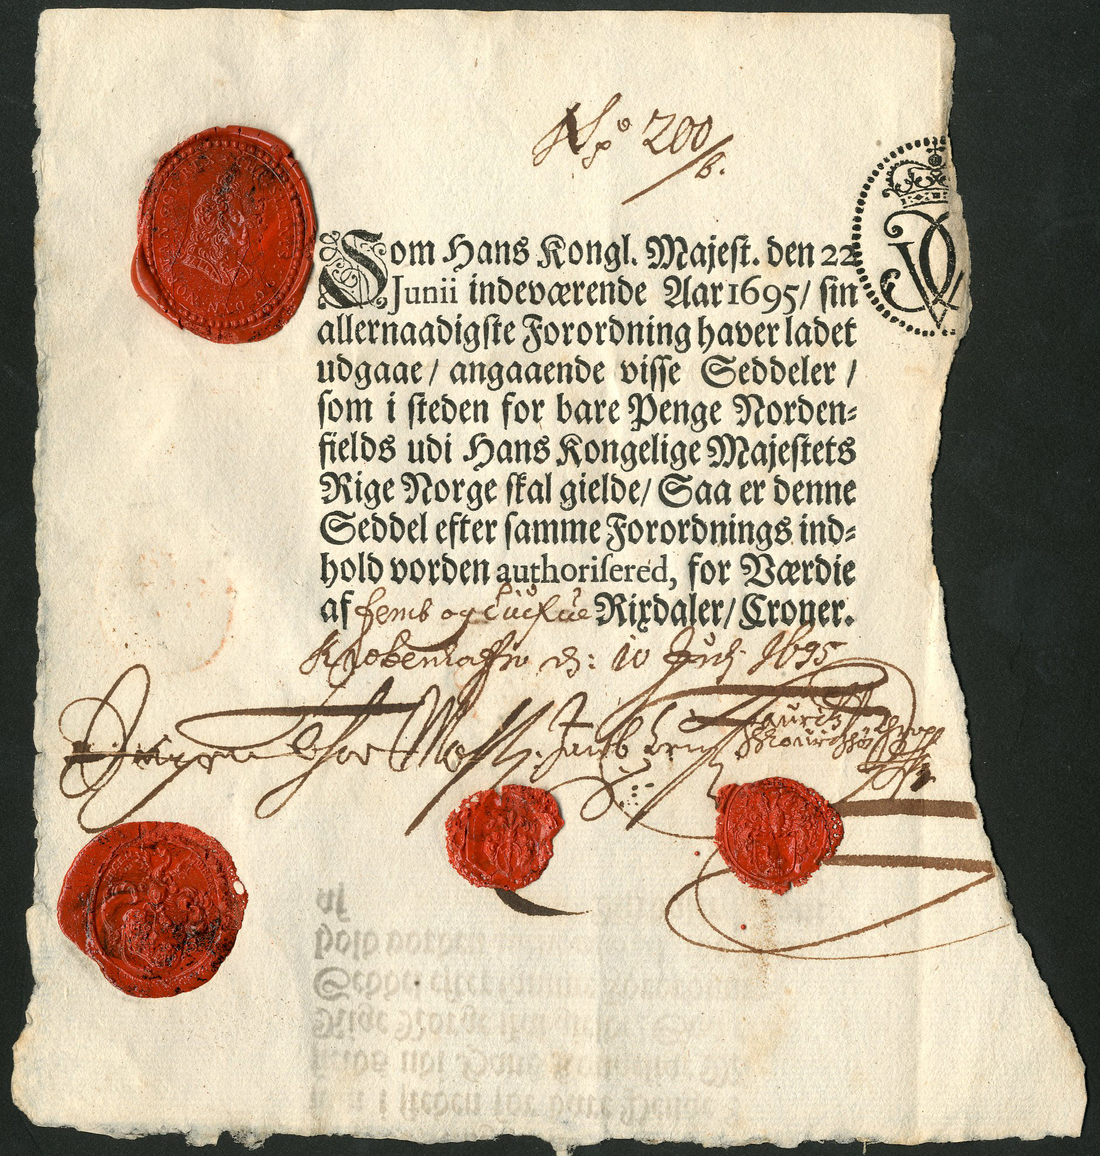 No 200/B.
Som Hans Kongl. Majest. den 22
Junii indeværende Aar 1695/ sin
allernaadigste Forordning haver ladet
udgaae/ angaaende visse Seddeler /
som i steden for bare Penge Norden⸗
fields udi Hans Kongelige Majestets
Rige Norge skal gielde/ Saa er denne
Seddel efter samme Forordnings ind⸗
hold vorden authorisered, for Værdie
af femb og Tiufue Rixdaler/ Croner.
Kiøbenhaffn d: 10 Juli 1695
Jørgen Thor Møhlen